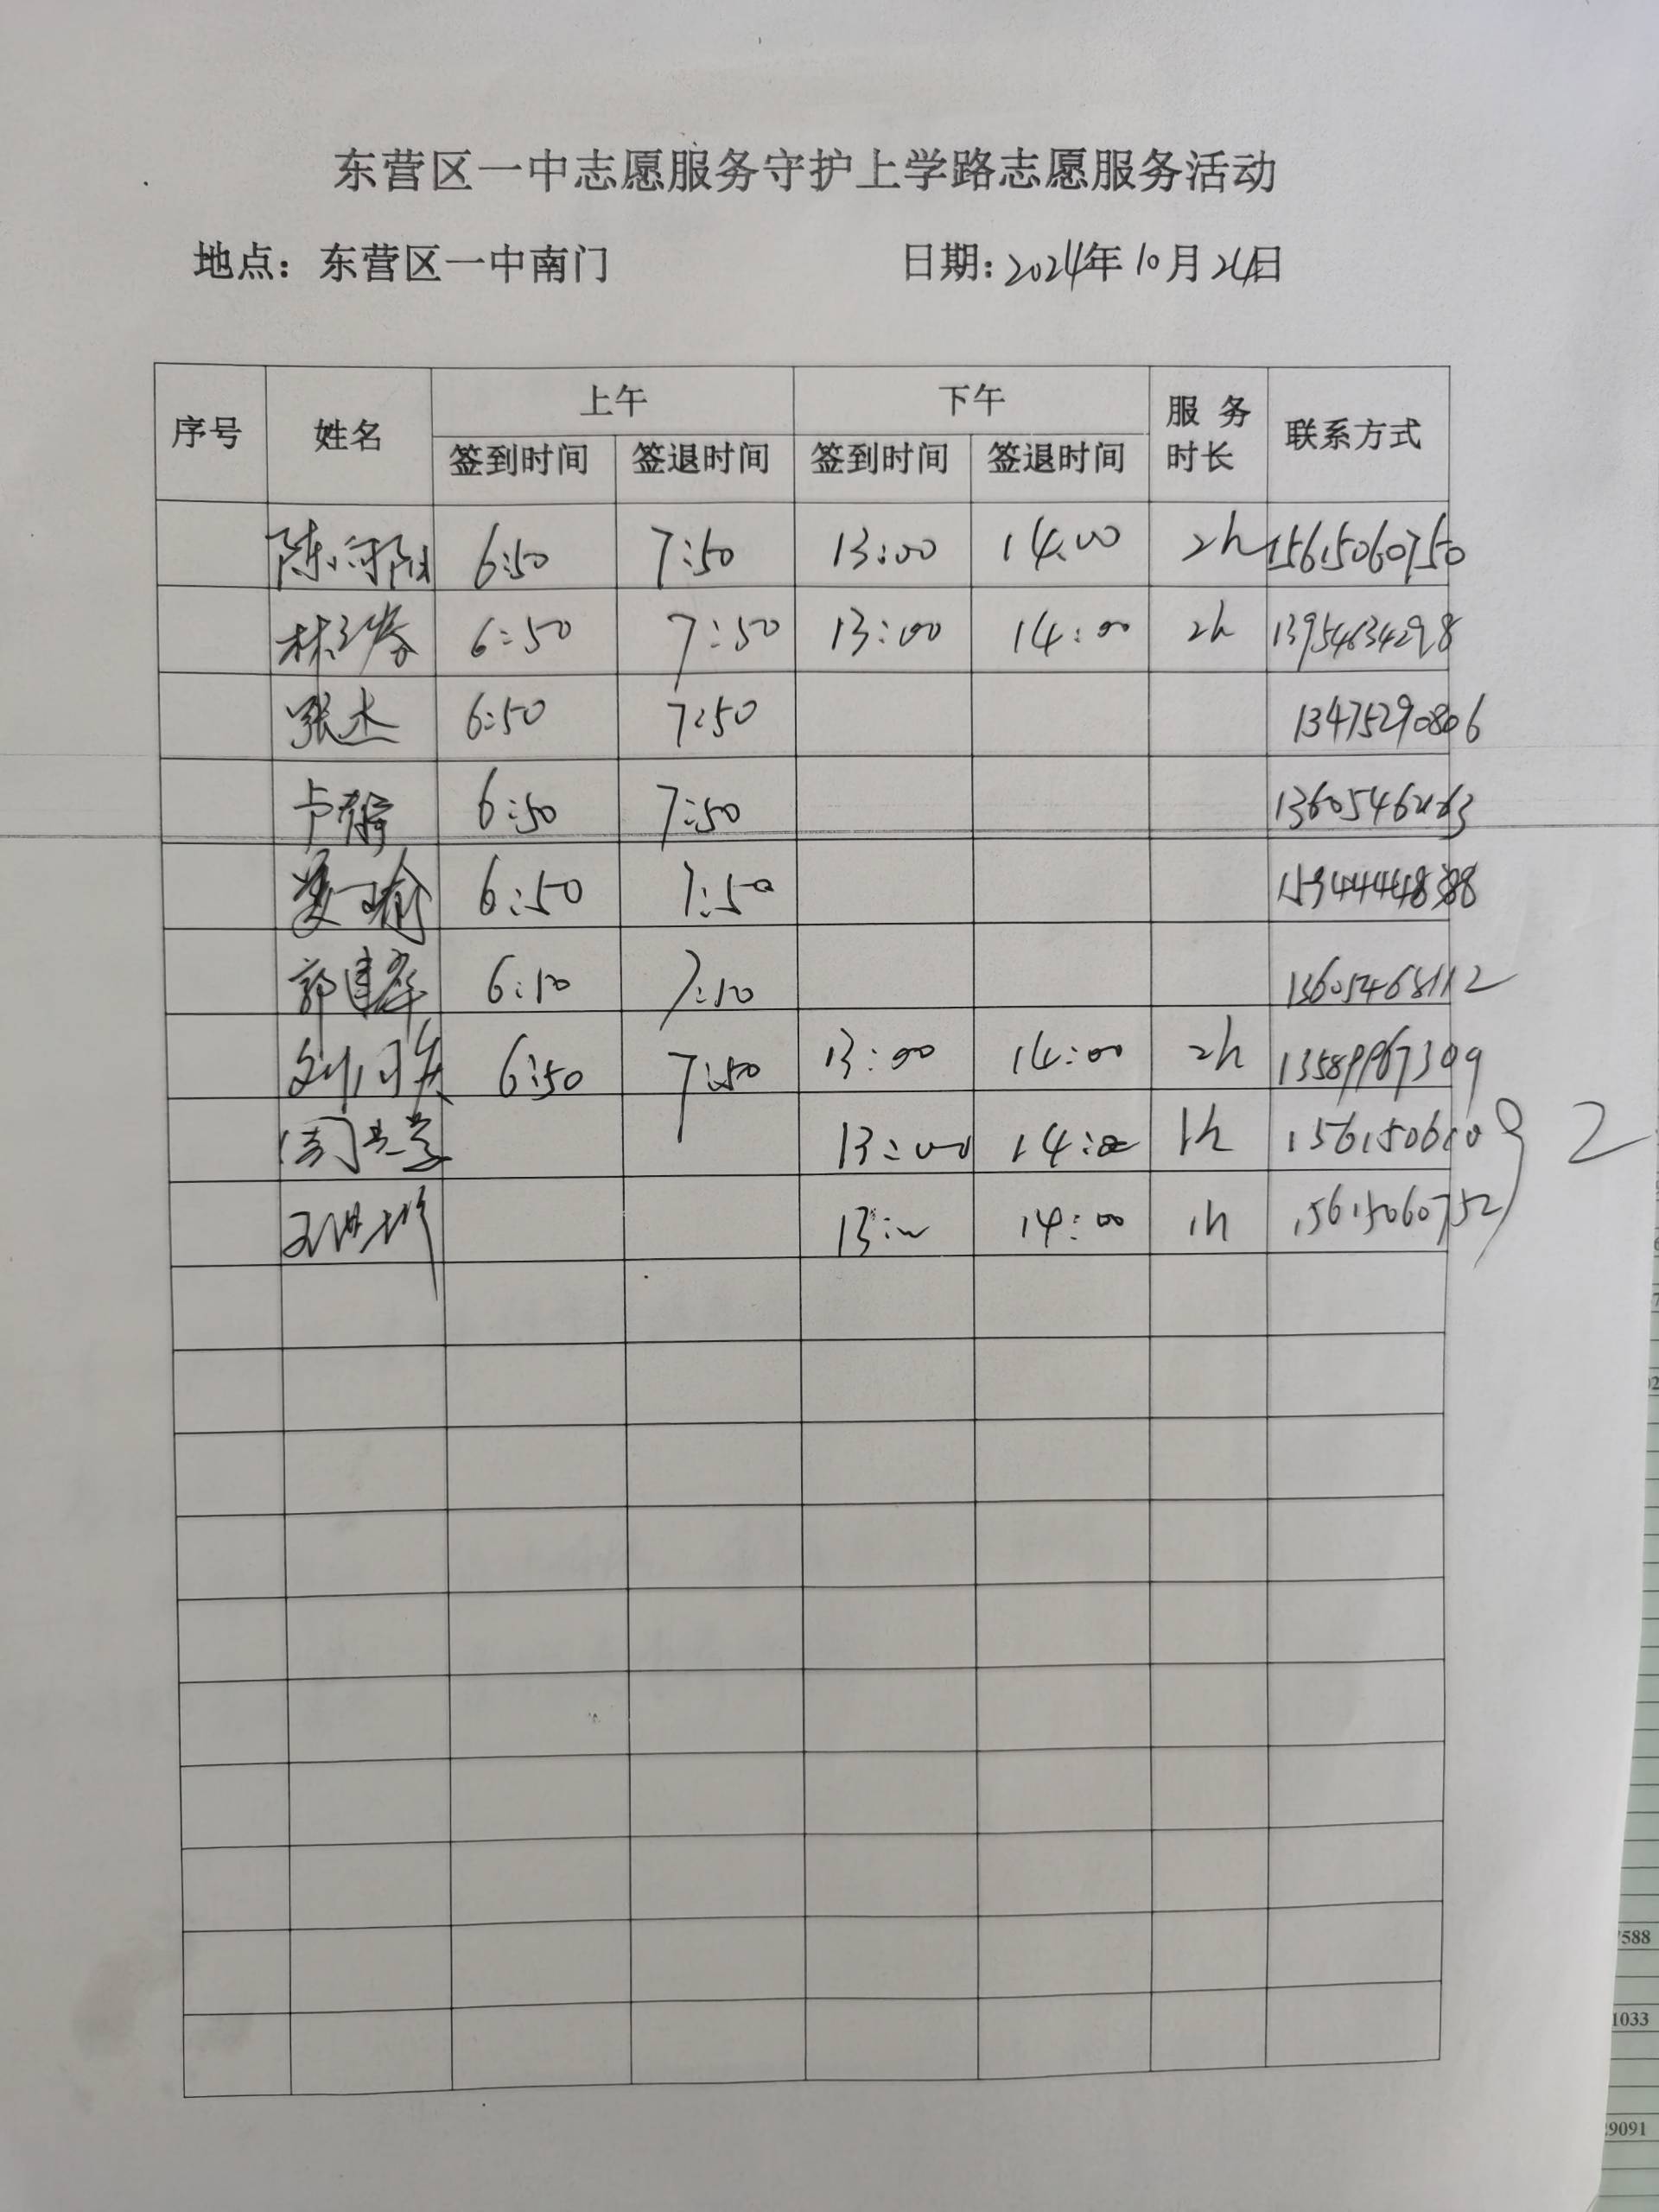 东营区一中志愿服务守护上学路志愿服务活动
地点：东营区一中南门 日期：2024年10月24日
序号 姓名 上午 下午 服务时长 联系方式
签到时间 签退时间 签到时间 签退时间
陈 6:50 7:50 13:00 14:00 2h 15615060750
林 6:50 7:50 13:00 14:00 2h 13954634298
张杰 6:50 7:50 13475290806
卢 6:50 7:50
6:50 7:50
郭建华 6:50 7:50 13605468112
刘 6:50 7:50 13:00 14:00 2h 13589967309
周 13:00 14:00 1h
王 13:00 14:00 1h 15615060752
7588
1033
9091